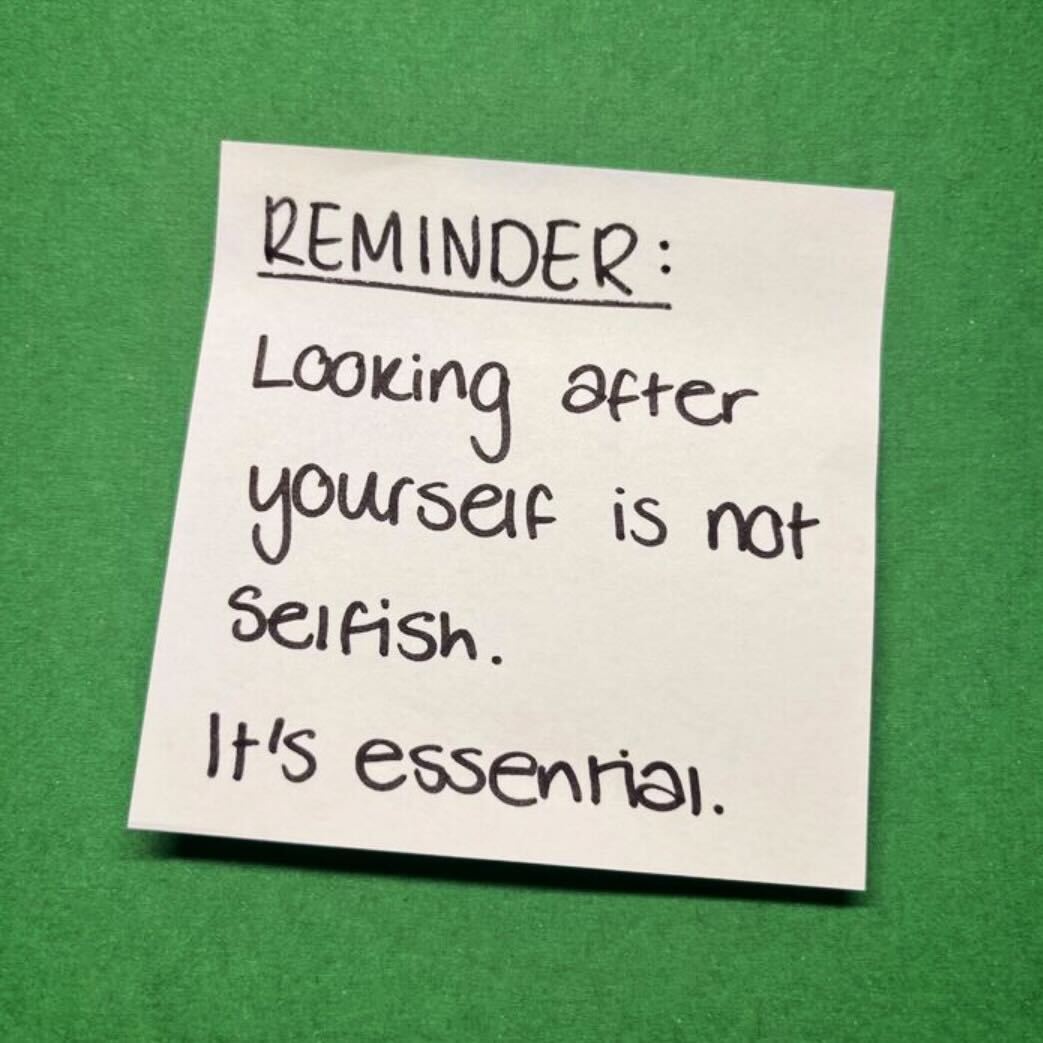 REMINDER:
Looking after
yourself is not
selfish.
It's essential.